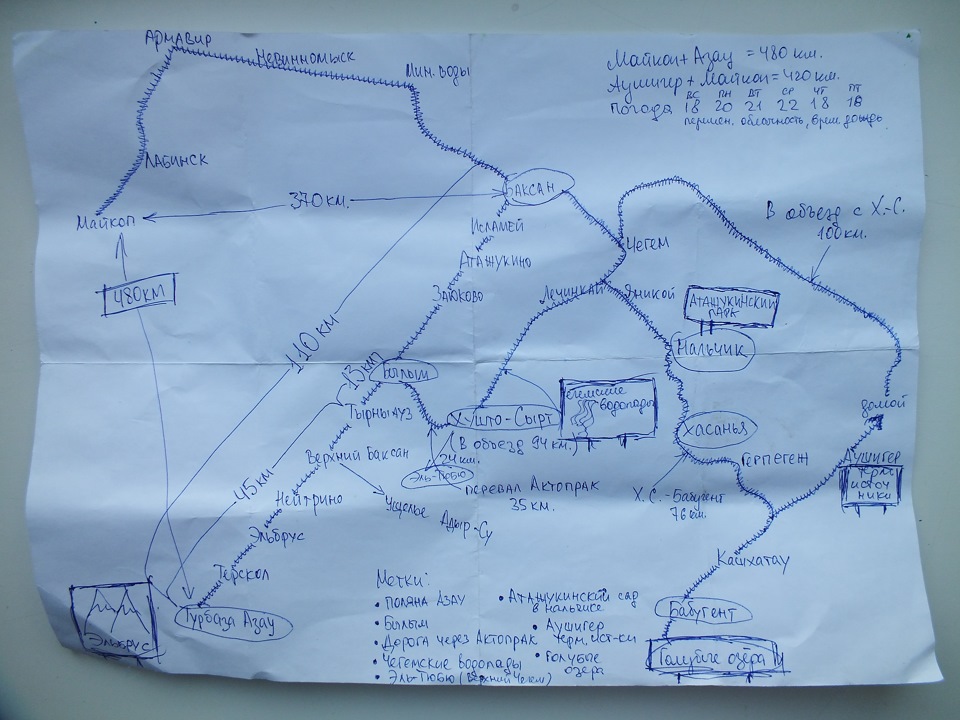 Майкоп + Азау = 480 км.
Аушигер + Майкоп = 420 км.
ВС ПН ВТ СР ЧТ ПТ
Погода 18 20 21 22 18 18
перемен. облачность, врем. дождь
Армавир
Невинномыск
Мин. воды
Лабинск
Майкоп
370 км.
Баксан
Исламей
Атажукино
Заюково
480 км
110 км
Чегем
В объезд с Х.-С.
100 км.
Лечинкай
Яникой
Аташукинский
парк
Нальчик
13 км
Былым
Тырныауз
Х-што-Сырт
Чегемские
водопады
(В объезд 94 км.)
24 км.
Эль-Тюбю
перевал Актопрак
35 км.
домой
Хасанья
Герпегеж
Х.С.-Бабугент
76 км.
Аушигер
терм.
источ
ники
Верхний Баксан
45 км
Нейтрино
Ущелье Адыр-Су
Эльбрус
Терскол
Турбаза Азау
Эльбрус
Кашхатау
Бабугент
Голубые озёра
Метки:
• Поляна Азау
• Былым
• Дорога через Актопрак
• Чегемские водопады
• Эль-Тюбю (Верхний Чегем)
• Атажукинский сад
в нальчике
• Аушигер
терм. ист-ки
• Голубые
озёра